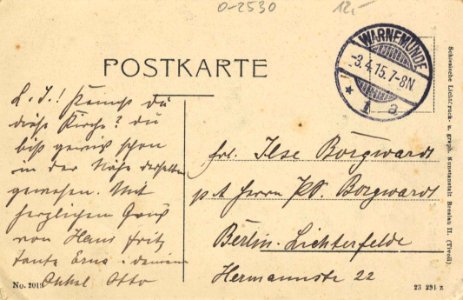 0-2530
12,-
WARNEMÜNDE
-3.4.15.7-8N
* 1 a
POSTKARTE
L. I.! Kennst du
diese Kirche? du
bist gewiß schon
in der Nähe derselben
gewesen. Mit
herzlichen Gruß
von Hans Fritz
tante Erna
Onkel Otto
Frl. Ilse Borgwardt
p. A Herrn Borgwardt
Berlin-Lichterfelde
Hermannstr 22
Schlesische Lichtdruck- u. graph. Kunstanstalt Breslau II. (Tivoli)
23 291 z